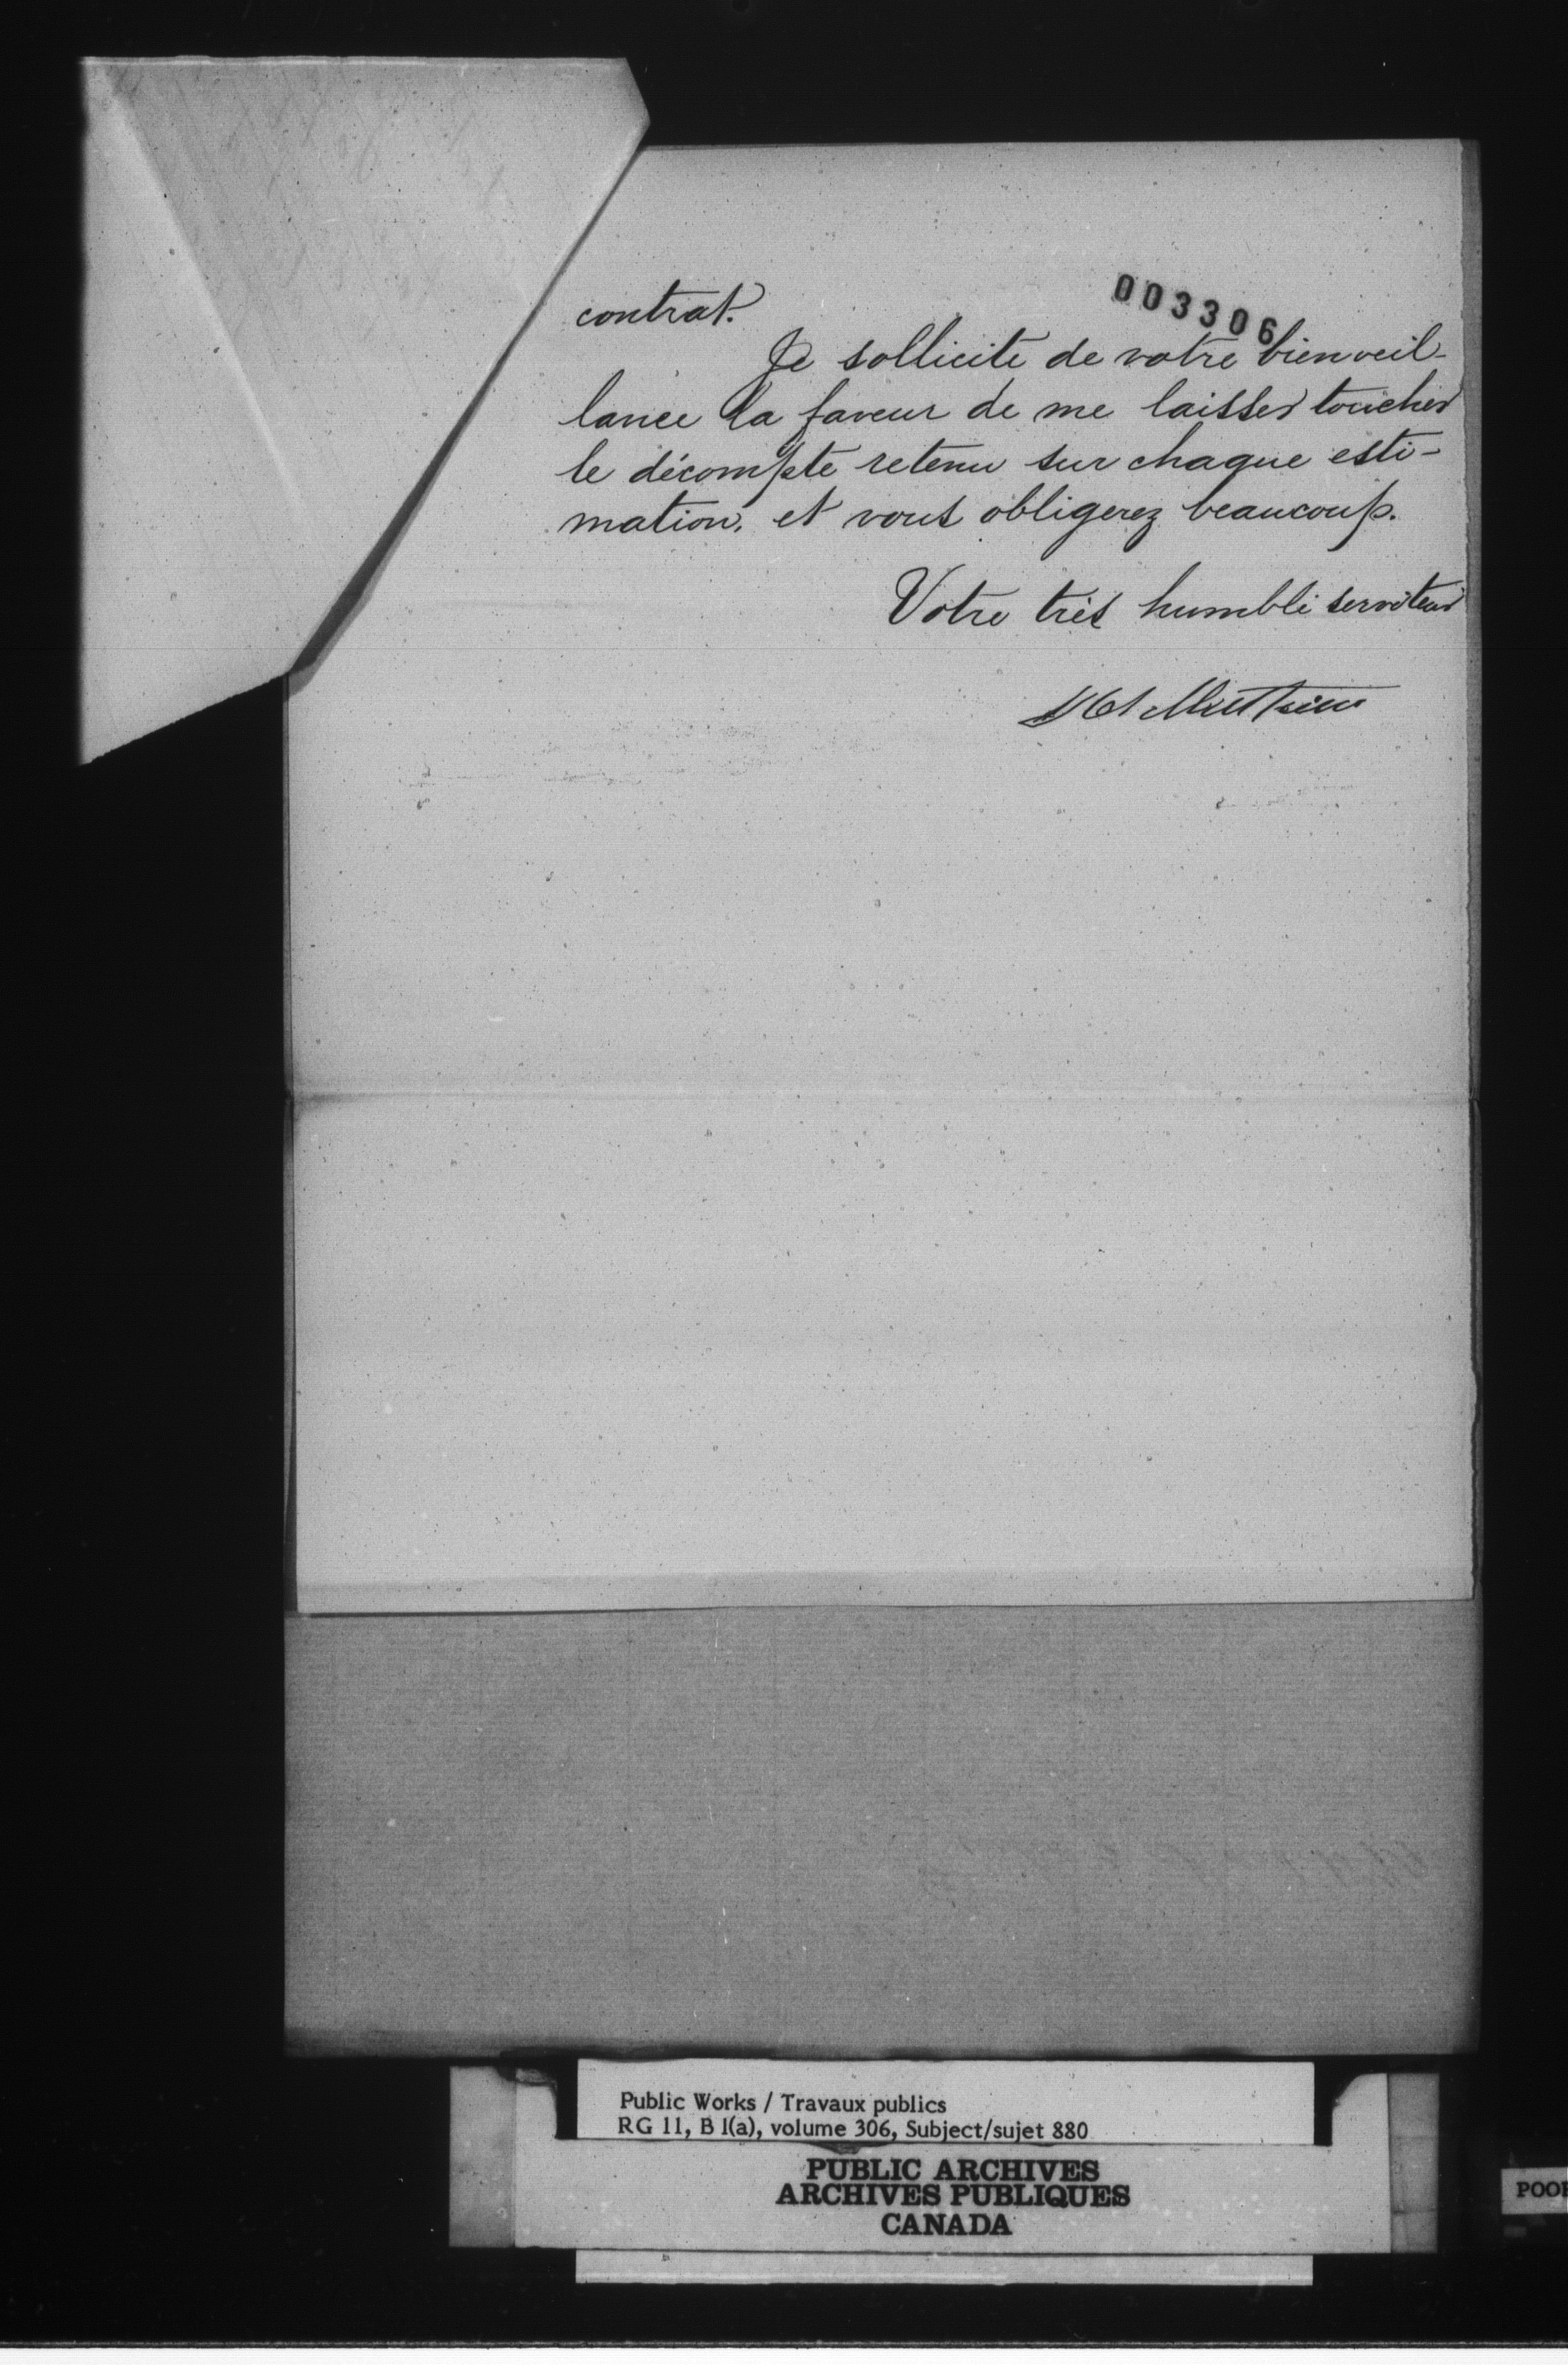 003306
contrat.
Je sollicite de votre bienveil-
lance la faveur de me laisser toucher
le décompte retenu sur chaque esti-
mation, et vous obligerez beaucoup.
Votre très humble serviteur
Public Works / Travaux publics
RG 11, B 1(a), volume 306, Subject/sujet 880
PUBLIC ARCHIVES
ARCHIVES PUBLIQUES
CANADA